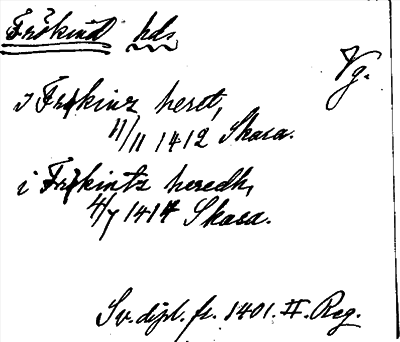 Frökind hds
Vg.
i Frøkinz heret,
11/11 1412 Skara.
i Frøkintz heredh,
4/7 1414 Skara.
Sv. dipl. fr. 1401. II. Reg.